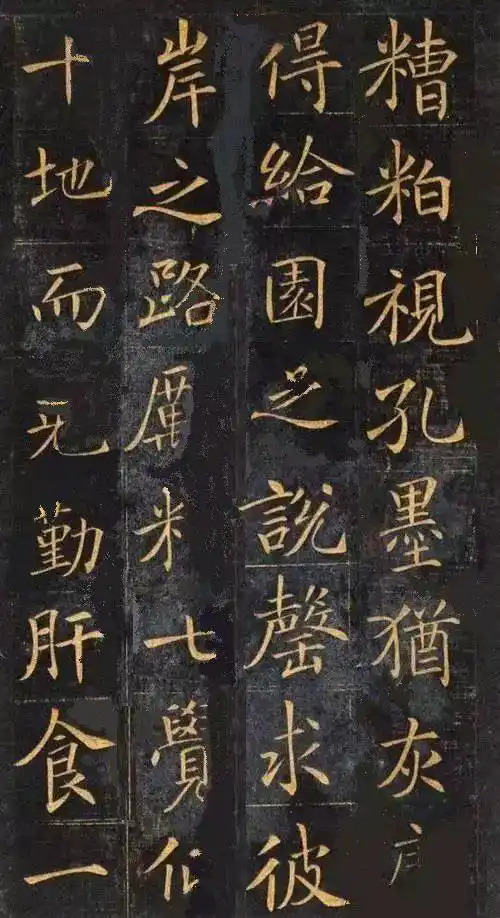 糟粕視孔墨猶灰
得給園之說罄求彼
岸之路厲米七覺
十地而无勤肝食一